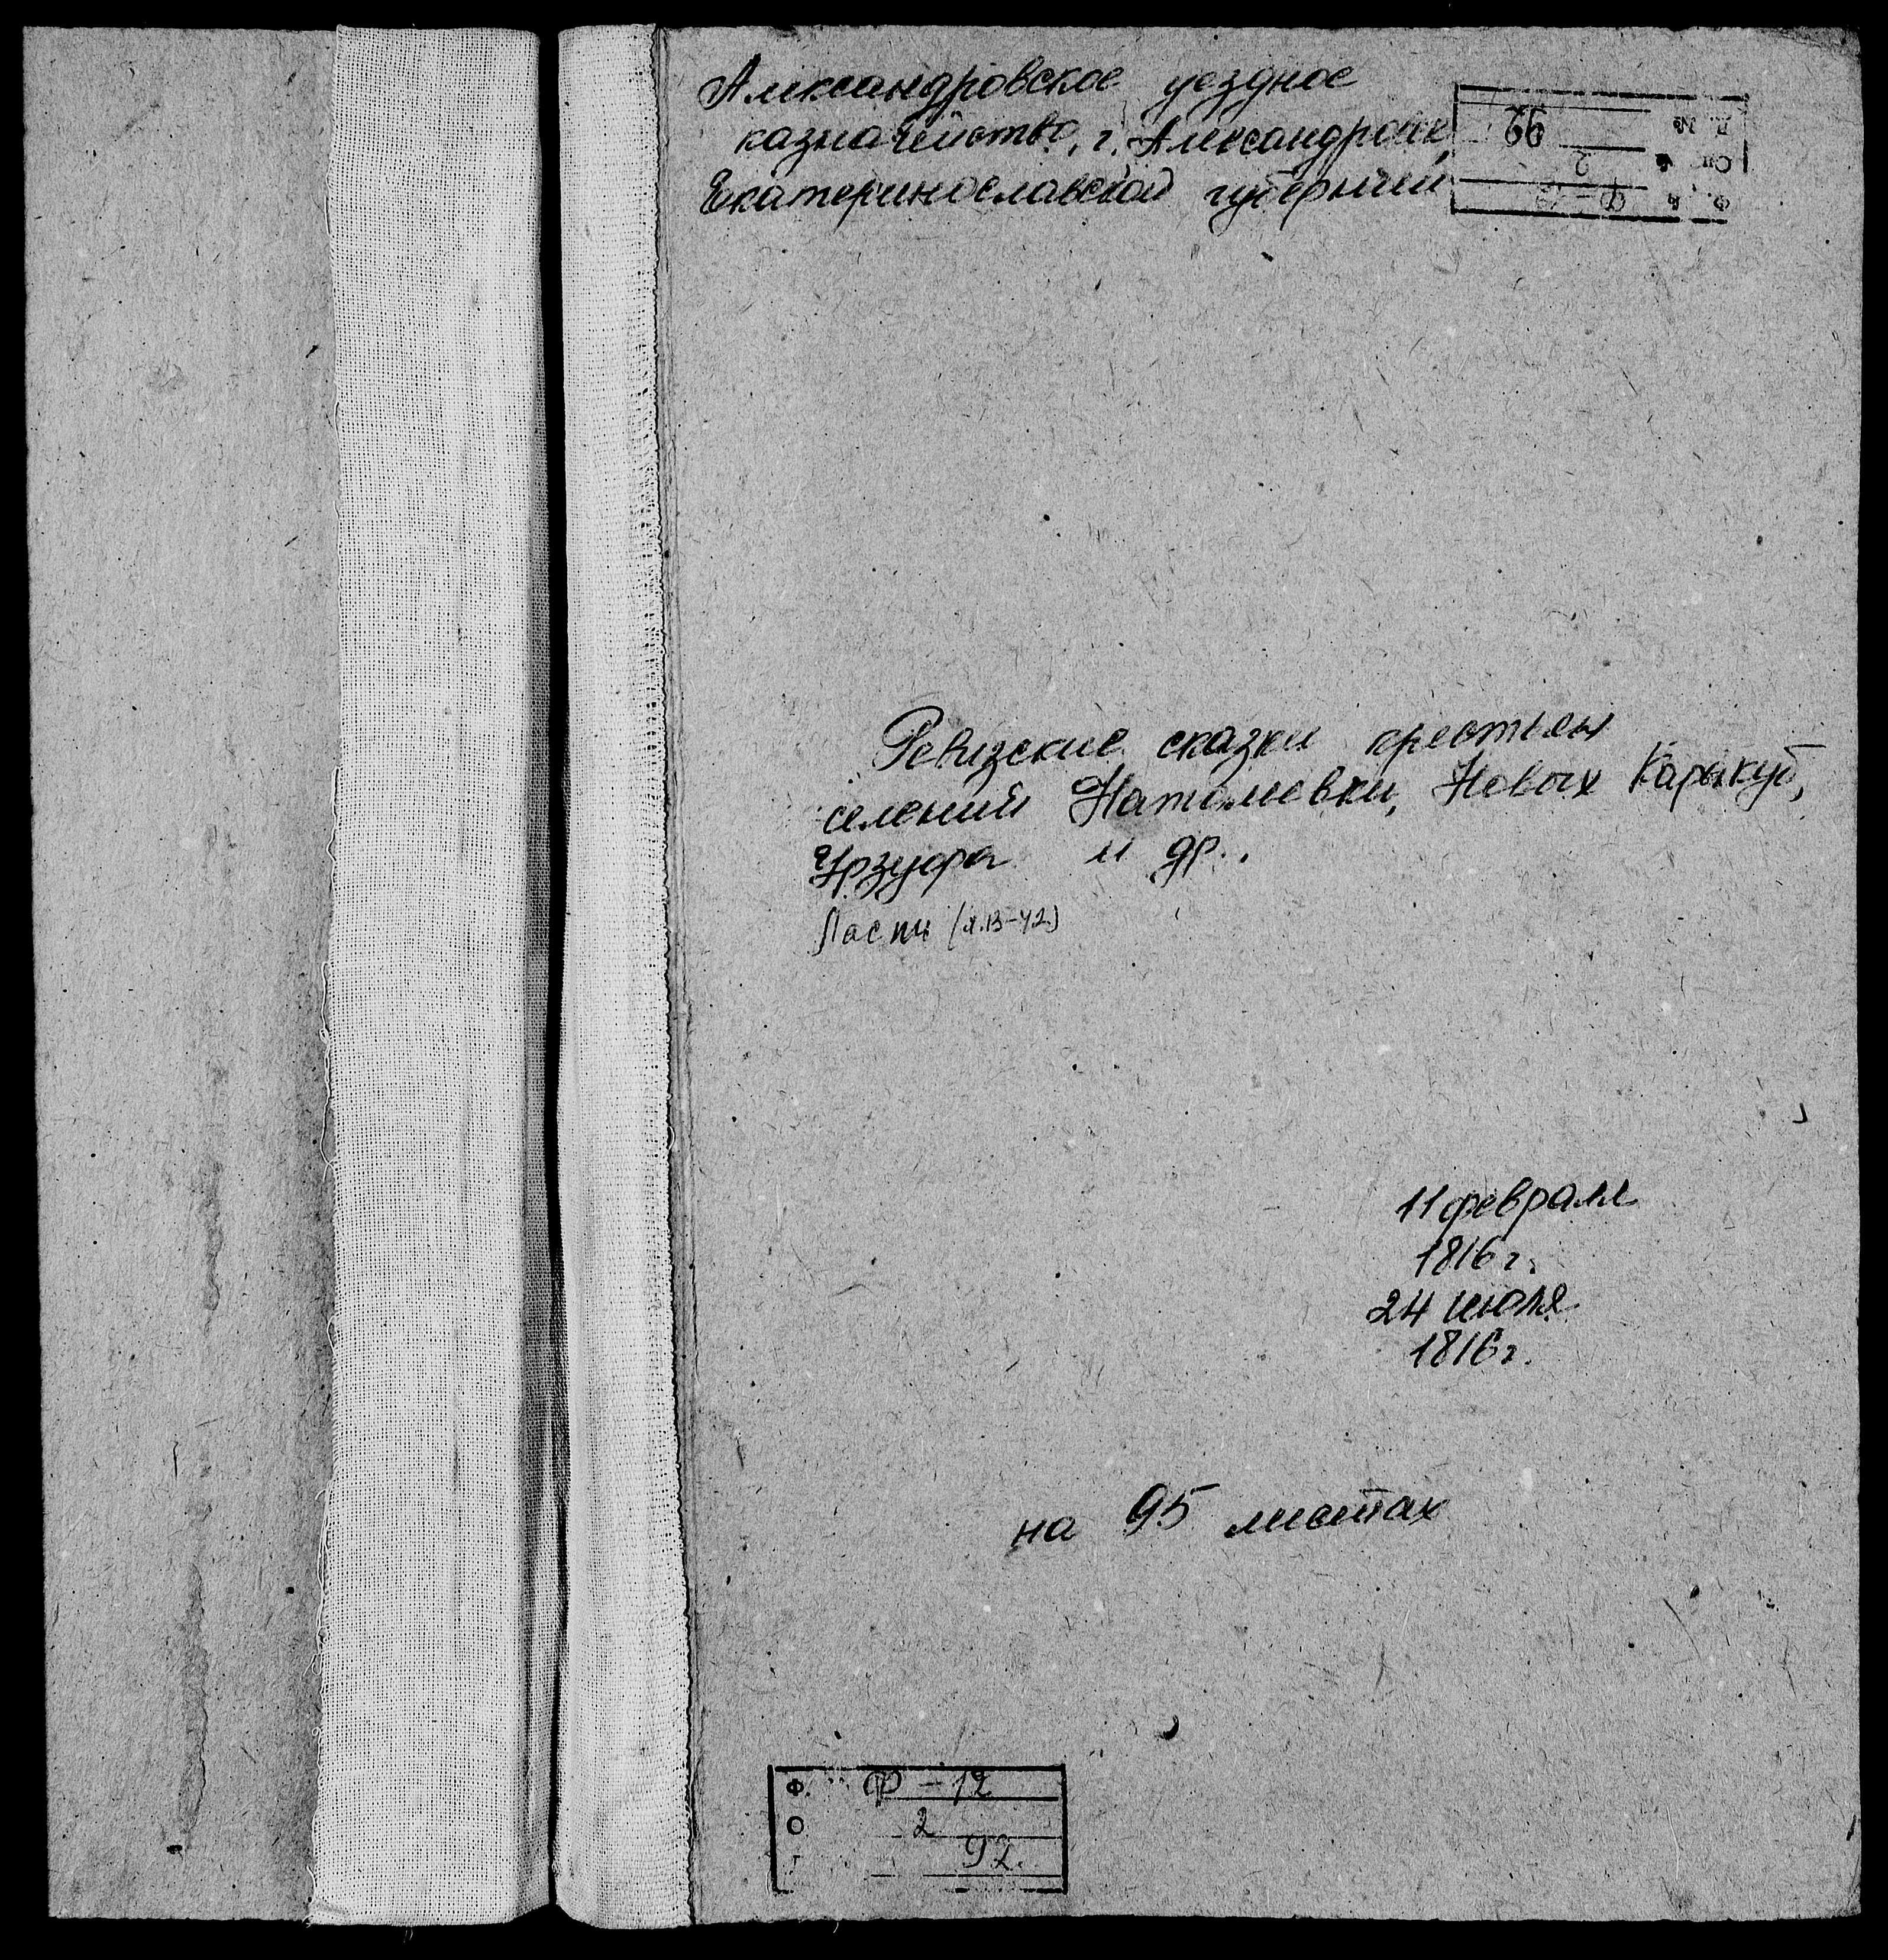 Александровское уездное
казначейство, г. Александровск,
Екатеринославской губернии
Д. № 92
Оп 2
Ф. Ф-12
Ревизские сказки крестьян
селений Натолиевки, Новых Каракуб,
Урзуфа и др..
Ласпи (л.13-42)
11 февраля
1816 г.
24 июля
1816 г.
на 95 листах
Ф. Ф-12
О 2
92.